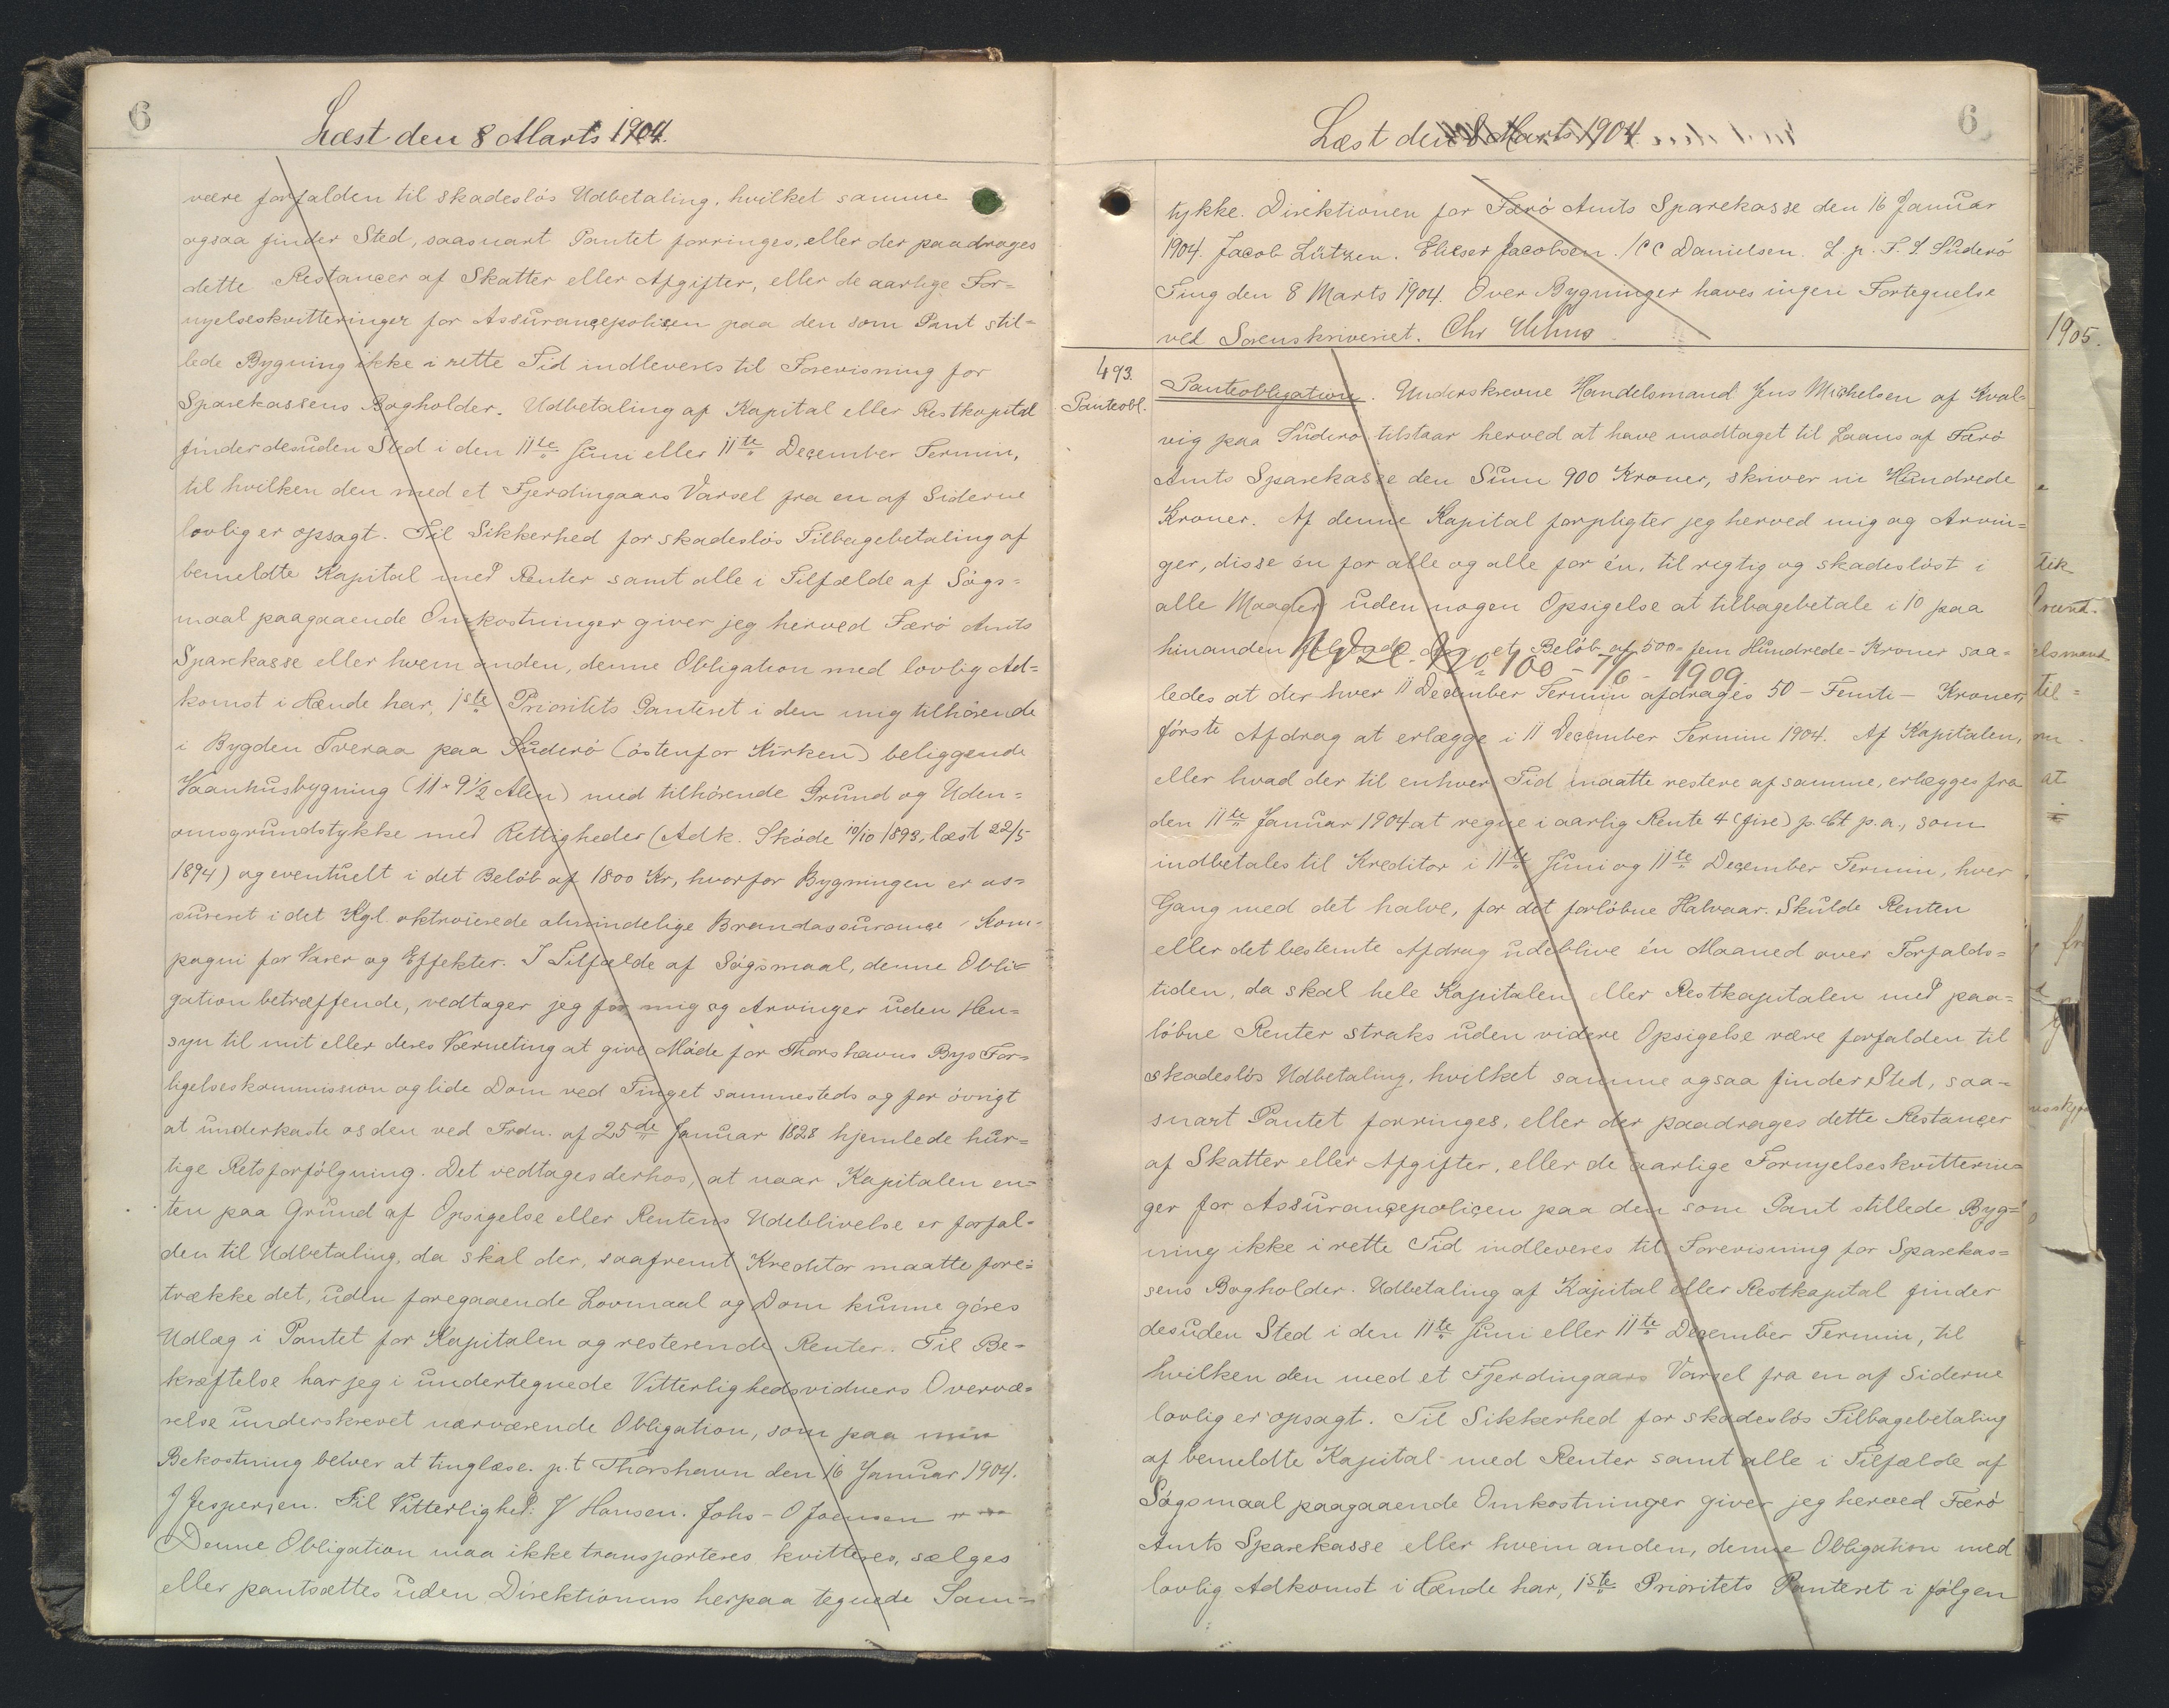 6
Læst den 8 Marts 1904.
være forfalden til skadesløs Udbetaling, hvilket samme
ogsaa finder Sted, saasnart Pantet forringes, eller der paadrages
dette Restancer af Skatter eller Afgifter, eller de aarlige For=
nyelseskvitteringer for Assurancepolicen paa den som Pant stil=
lede Bygning ikke i rette Tid indleveres til Forevisning for
Sparekassens Bogholder. Udbetaling af Kapital eller Restkapital
finder desuden Sted i den 11te Juni eller 11te December Termin,
til hvilken den med et Fjerdingaars Varsel fra en af Siderne
lovlig er opsagt. Til Sikkerhed for skadesløs Tilbagebetaling af
bemeldte Kapital med Renter samt alle i Tilfælde af Søgs=
maal paagaaende Omkostninger giver jeg herved Færø Amts
Sparekasse eller hvem anden, denne Obligation med lovlig Ad=
komst i Hænde har, 1ste Prioritets Panteret i den mig tilhørende
i Bygden Tveraa paa Suderø (østenfor Kirken) beliggende
Vaanhusbygning (11 × 9½ Alen) med tilhørende Grund og Uden=
omsgrundstykke med Rettigheder (Adk. Skøde 10/10 1893, læst 22/5
1894) og eventuelt i det Beløb af 1800 Kr, hvorfor Bygningen er as=
sureret i det Kgl. oktroierede almindelige Brandassurance-Kom-
pagni for Varer og Effekter. I Tilfælde af Søgsmaal, denne Obli=
gation betræffende, vedtager jeg for mig og Arvinger uden Hen=
syn til mit eller deres Værneting at give Møde for Thorshavns Byes For=
ligelseskommission og lide Dom ved Tinget sammesteds og for øvrigt
at underkaste os den ved Frdn. af 25de Januar 1828 hjemlede hur=
tige Retsforfølgning. Det vedtages derhos, at naar Kapitalen en=
ten paa Grund af Opsigelse eller Rentens Udeblivelse er forfal=
den til Udbetaling, da skal der, saafremt Kreditor maatte fore=
trække det, uden foregaaende Lovmaal og Dom kunne gøres
Udlæg i Pantet for Kapitalen og resterende Renter. Til Be=
kræftelse har jeg i undertegnede Vitterlighedsvidners Overvæ=
relse underskrevet nærværende Obligation, som paa min
Bekostning belver at tinglæse. p.t. Thorshavn den 16 Januar 1904.
J Jespersen. Til Vitterlighed: J Hansen. Johs - O Joensen
Denne Obligation maa ikke transporteres kvitteres, sælges
eller pantsættes uden Direktionens herpaa tegnede Sam=
6
Læst den 8 Marts 1904
tykke. Direktionen for Færø Amts Sparekasse den 16 Januar
1904. Jacob Lützen. Elieser Jacobsen. /CC Danielsen. L. p. S. I. Suderø
Ting den 8 Marts 1904. Over Bygninger haves ingen Fortegnelse
ved Sorenskriveriet. Chr
493.
Panteobl.
Panteobligation. Underskrevne Handelsmand Jens Michelsen af Kval-
vig paa Suderø tilstaar herved at have modtaget til Laans af Færø
Amts Sparekasse den Sum 900 Kroner, skriver ni Hundrede
Kroner. Af denne Kapital forpligter jeg herved mig og Arvin=
ger, disse én for alle og alle for én, til rigtig og skadesløst i
alle Maader uden nogen Opsigelse at tilbagebetale i 10 paa
hinanden følgende Aar et Beløb af 500 - fem Hundrede - Kroner saa=
No 100 - 7/6 - 1909
ledes at der hver 11 December Termin afdrages 50 - Femti - Kroner,
første Afdrag at erlægge i 11 December Termin 1904. Af Kapitalen,
eller hvad der til enhver Tid maatte restere af samme, erlægges fra
den 11te Januar 1904 at regne i aarlig Rente 4 (fire) p. Ct p.a., som
indbetales til Kreditor i 11te Juni og 11te December Termin, hver
Gang med det halve, for det forløbne Halvaar. Skulde Renten
eller det bestemte Afdrag udeblive én Maaned over Forfalds=
tiden, da skal hele Kapitalen eller Restkapitalen med paa=
løbne Renter straks uden videre Opsigelse være forfalden til
skadesløs Udbetaling, hvilket samme ogsaa finder Sted, saa=
snart Pantet forringes, eller der paadrages dette Restancer
af Skatter eller Afgifter, eller de aarlige Fornyelseskvitterin=
ger for Assurancepolicen paa den som Pant stillede Byg=
ning ikke i rette Tid indleveres til Forevisning for Sparekas=
sens Bogholder. Udbetaling af Kapital eller Restkapital finder
desuden Sted i den 11te Juni eller 11te December Termin, til
hvilken den med et Fjerdingaars Varsel fra en af Siderne
lovlig er opsagt. Til Sikkerhed for skadesløs Tilbagebetaling
af bemeldte Kapital med Renter samt alle i Tilfælde af
Søgsmaal paagaaende Omkostninger giver jeg herved Færø
Amts Sparekasse eller hvem anden, denne Obligation med
lovlig Adkomst i Hænde har, 1ste Prioritets Panteret i følgen
1905.